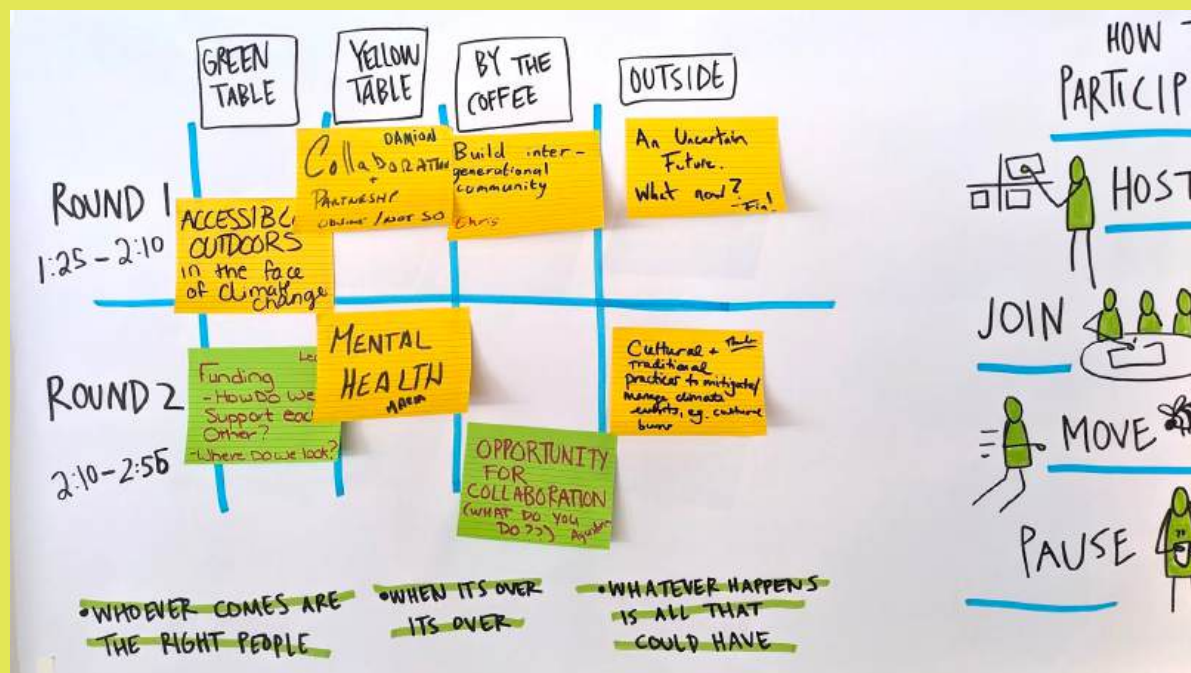 GREEN
TABLE
YELLOW
TABLE
BY THE
COFFEE
OUTSIDE
ROUND 1
1:25 - 2:10
ACCESSIBLE
OUTDOORS
in the face
of climate
change
DAMION
COLLABORATION
+
PARTNERSHIP
/ NOT SO
Build inter-
generational
community
Chris
An Uncertain
Future.
What now?
ROUND 2
2:10 - 2:55
Funding
- How Do We
Support each
Other?
- Where Do we look?
MENTAL
HEALTH
Cultural +
Traditional
practices to mitigate/
manage climate
events, eg. culture
burns
OPPORTUNITY
FOR
COLLABORATION
(WHAT DO YOU
DO???)
• WHOEVER COMES ARE
THE RIGHT PEOPLE
• WHEN ITS OVER
ITS OVER
• WHATEVER HAPPENS
IS ALL THAT
COULD HAVE
HOW T
PARTICIP
HOST
JOIN
MOVE
PAUSE